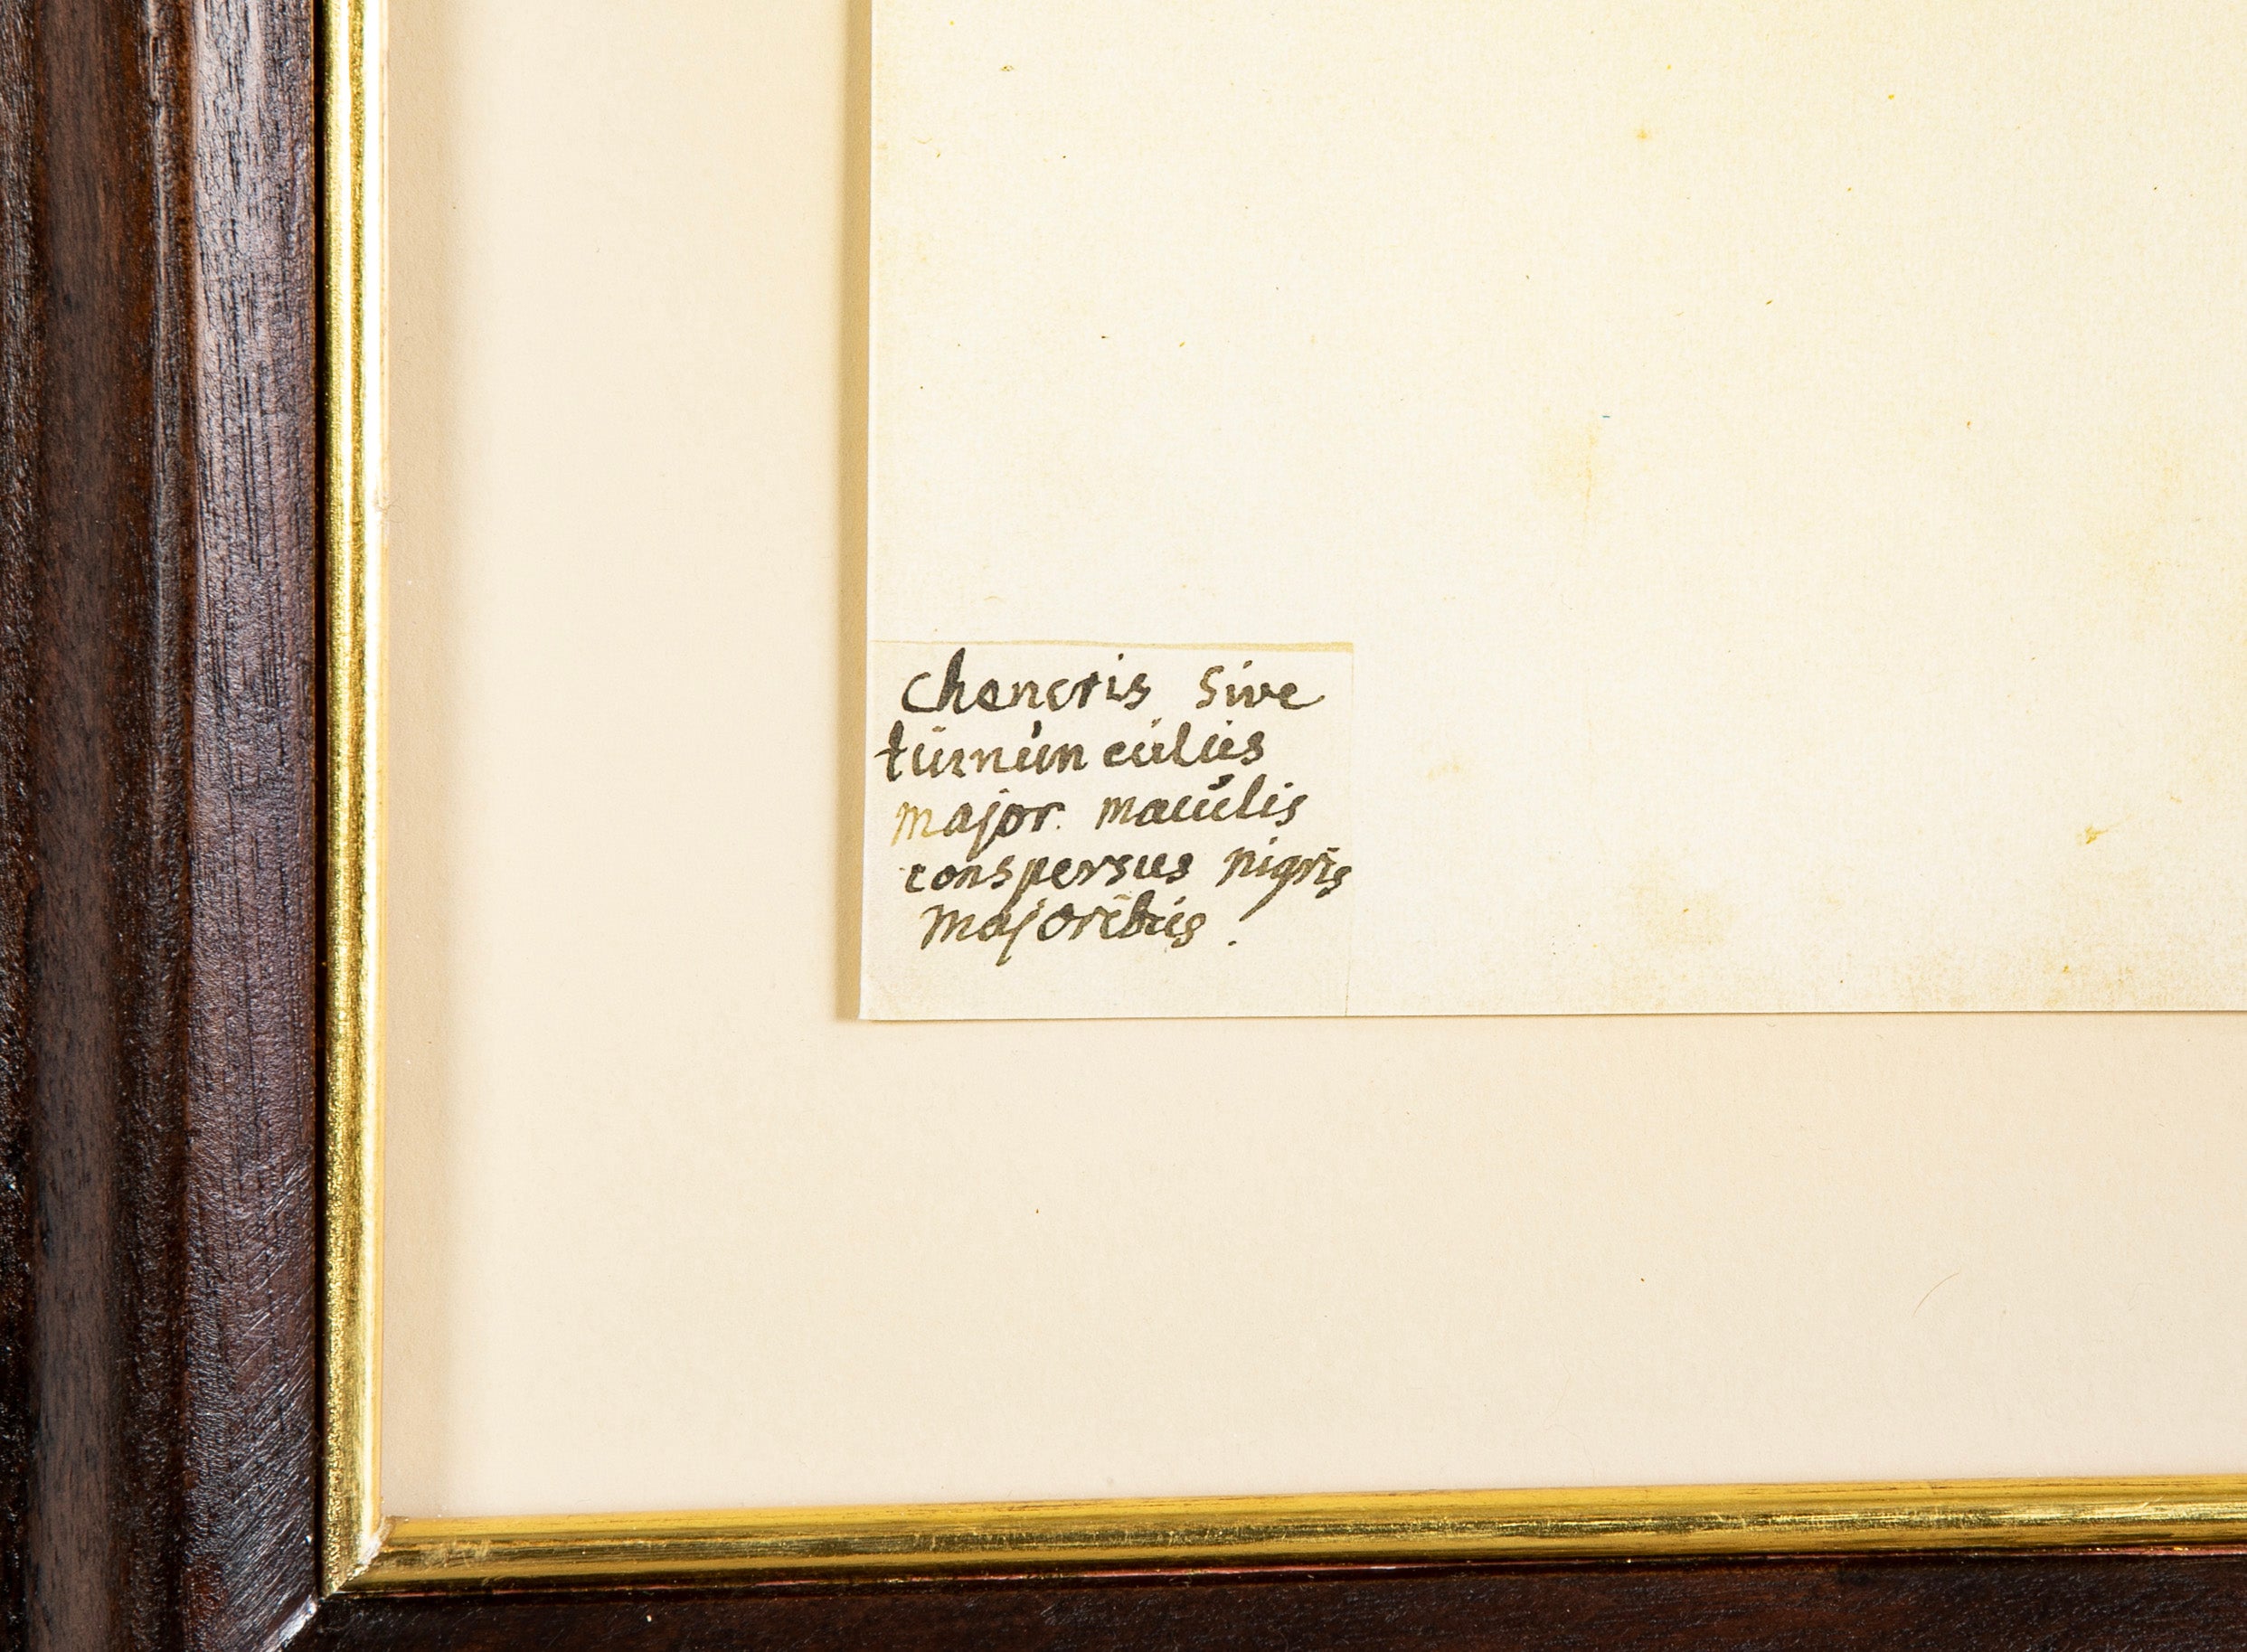 Chencris Sive
tinnunculus
major. maculis
conspersus nigris
majoribus.